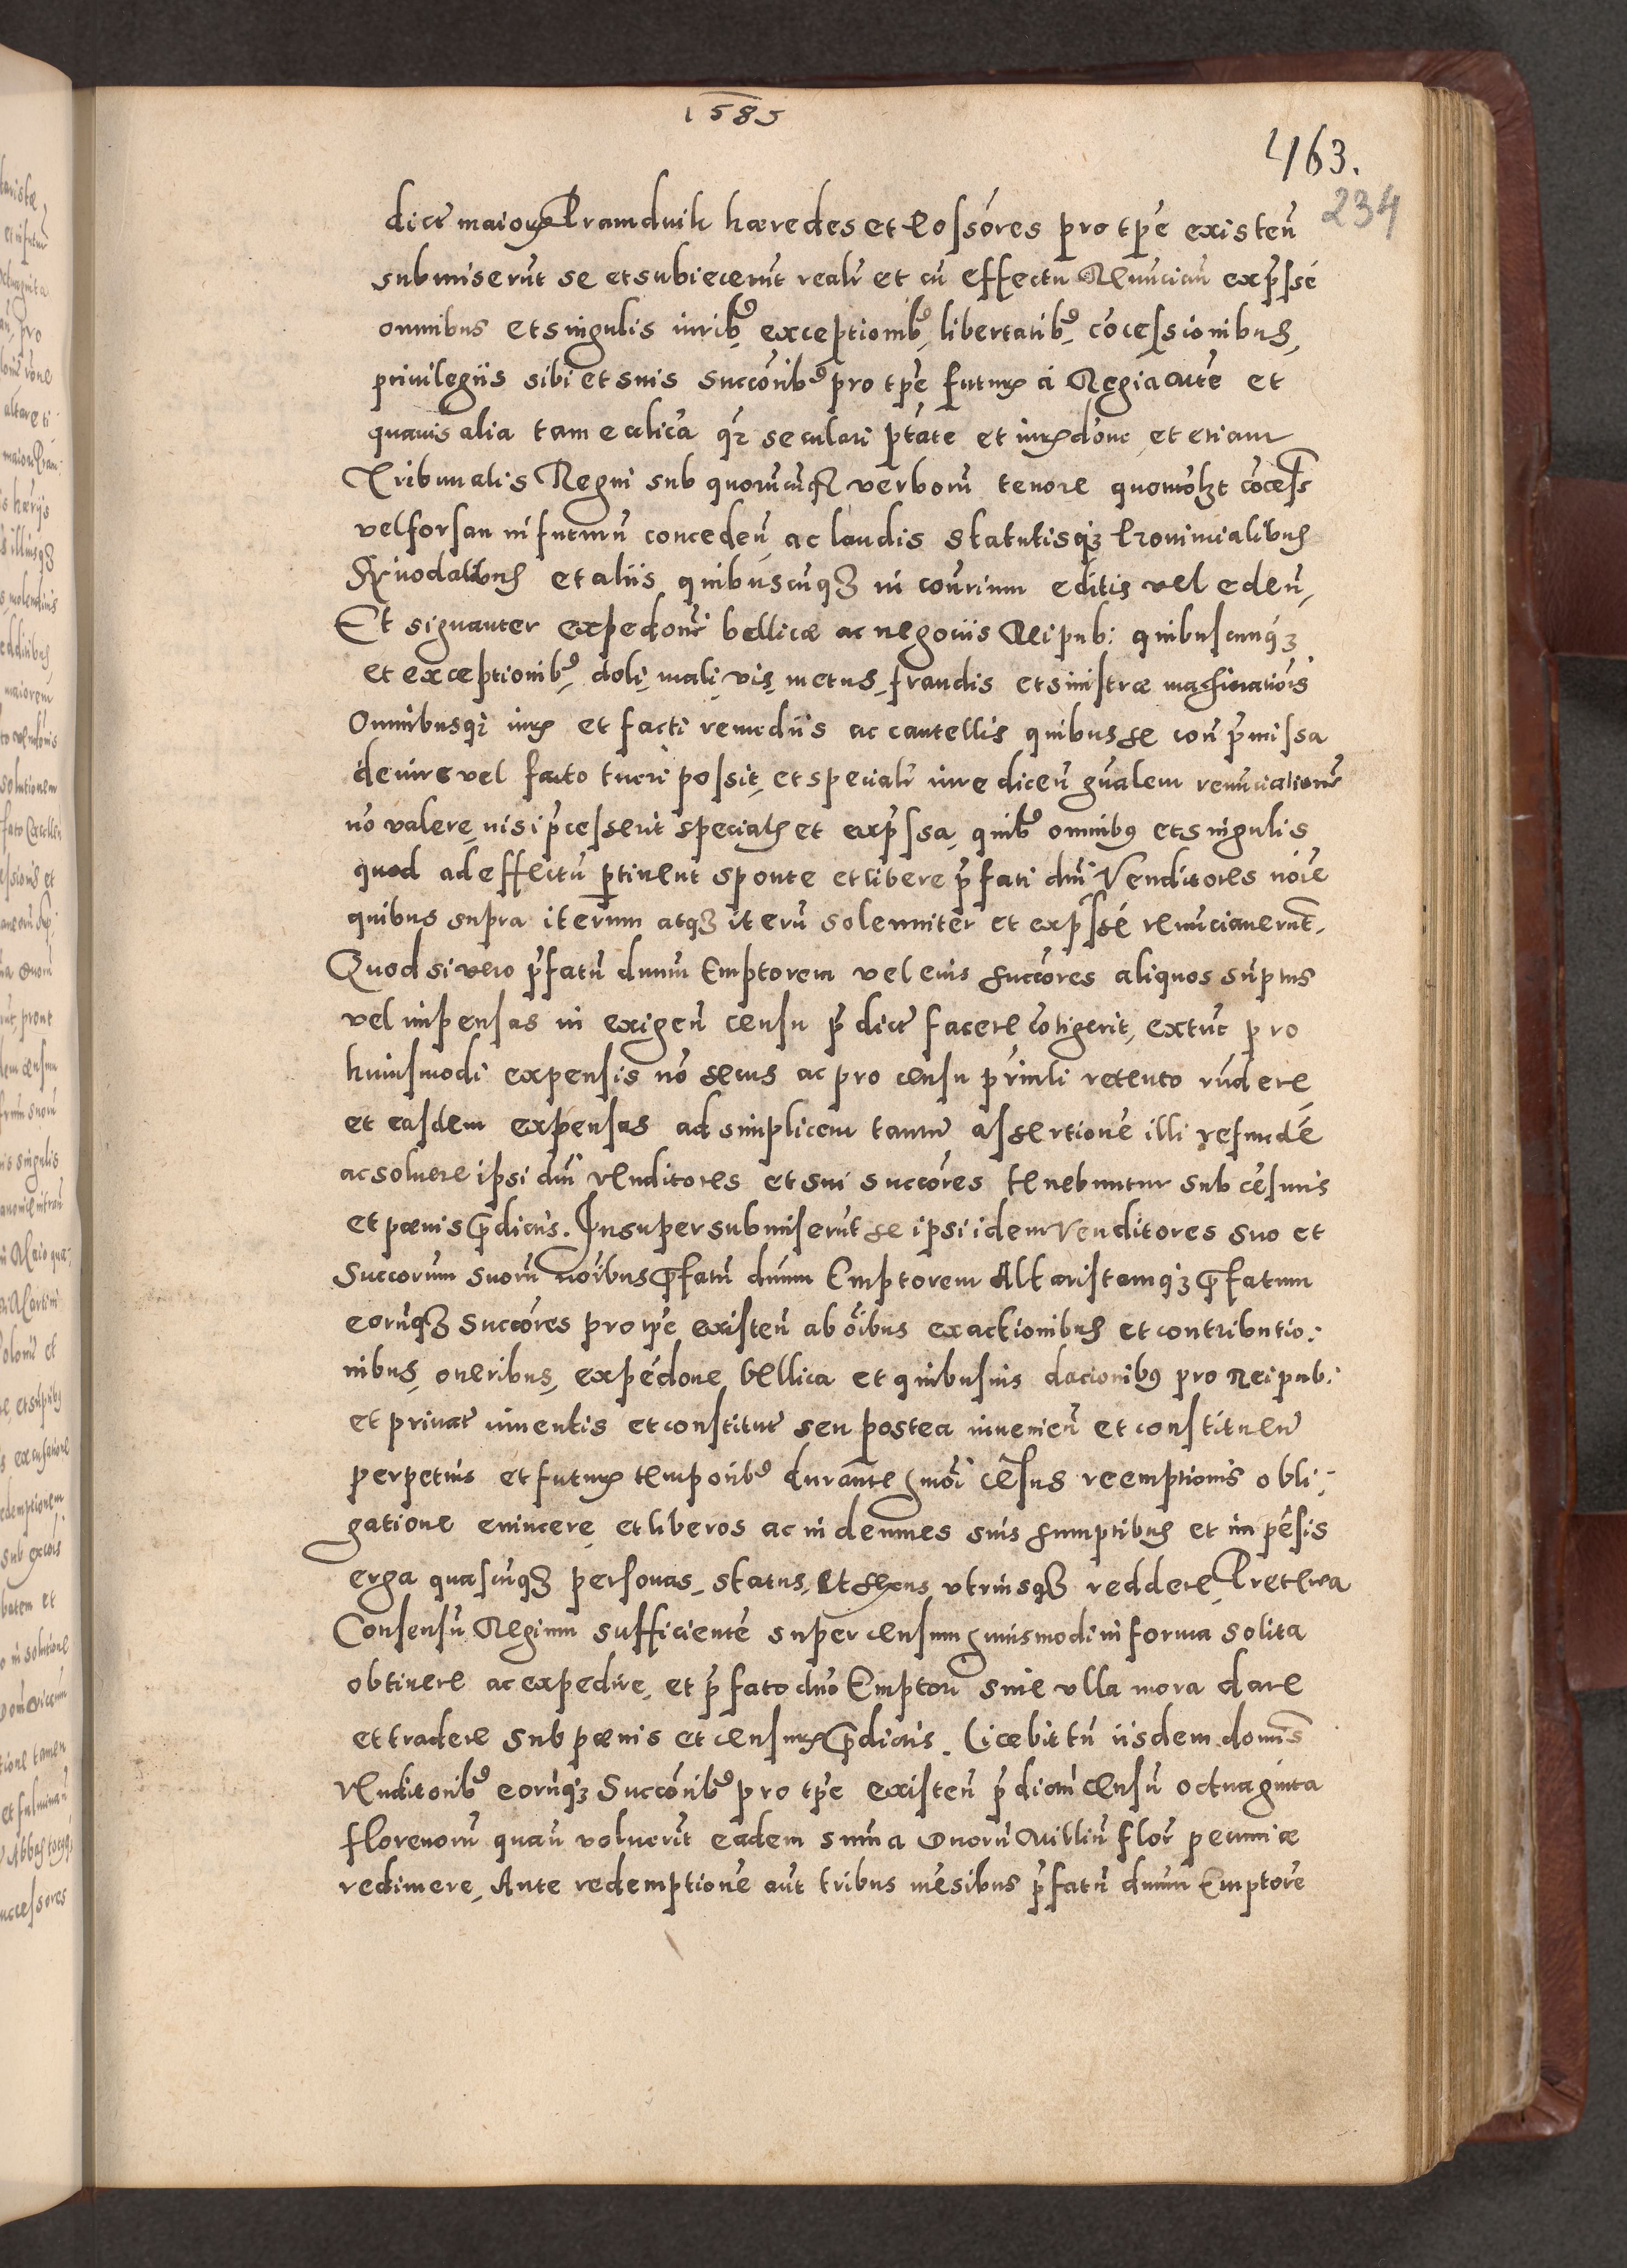 1585
463.
234
dict maioris Pramduik hæredes et Possores pro tpe existen
submiserut se et subiecerut realr et cu effectu Renuncian exp̃sse
omnibus et singulis iurib9, exceptionib9, libertatib9, cõcessionibus,
priuilegiis sibi et suis succorib9 pro tpe futuris a Regia aute et
quauis alia tam ecclica q̃ seculari ptate et iurisdone et etiam
Tribunalis Regni sub quorucunq verboru tenore quomolzt cõcess
vel forsan in futuru conceden ac laudis statutisq3 Prouincialibus
Synodalibus et aliis quibuscuq3 in contrium editis vel eden,
Et signanter expedoni bellicæ ac negociis Reipub: quibuscunq3
et exceptionib9, doli, mali, vis, metus, fraudis et sinistræ machinationis
Omnibusq3 iuris et facti remediis ac cautellis quibus se con p̃missa
de iure vel facto tueri possit, et specialr iure dicen gñalem renuciatione
nõ valere, nisi p̃cesserit specialis et exp̃ssa, quib9 omnibus et singulis
quod ad effectu ptinent sponte et libere p̃fati dni Venditores noie
quibus supra iterum atq3 iteru solemniter et exp̃sse renunciauerut.
Quod si vero p̃fatu dnum Emptorem vel eius succores aliquos sũptus
vel impensas in exigen censu p̃dict facere cõtigerit, extuc pro
huiusmodi expensis nõ secus ac pro censu prinli retento rñdere,
et easdem expensas ad simplicem tantu assertione illi refunde
ac soluere ipsi dni venditores et sui succores tenebuntur sub cẽsuris
et pœnis p̃dictis. Insuper submiserut se ipsi idem Venditores suo et
Succorum suoru noibus p̃fatu dnum Emptorem Altaristamq3 p̃fatum
eorũq3 succores pro tpe existen ab oibus exactionibus et contributio:
nibus, oneribus, expedone bellica et quibusuis dacionib9 pro Reipub:
et priuat inuentis et constitut seu postea inuenien et constituen
perpetuis et futuris temporib9 durante hmoi cẽsus reemptionis obli:
gatione euincere, et liberos ac indemnes suis sumptibus et impẽsis
erga quascuq3 personas, status, et sexus vtriusq3 reddere, Preterea
Consensu Regium sufficiente super censum huiusmodi in forma solita
obtinere ac expedire, et p̃fato dno Emptori sine vlla mora dare
et tradere sub pœnis et censuris p̃dictis. Licebit tñ iisdem dominis
Venditorib9 eorũq3 Succorib9 pro tpe existen p̃dictum censu octuaginta
florenoru quan voluerit eadem suma duoru milliu flor pecuniæ
redimere, Ante redemptione aut tribus mẽsibus p̃fatu dnum Emptore